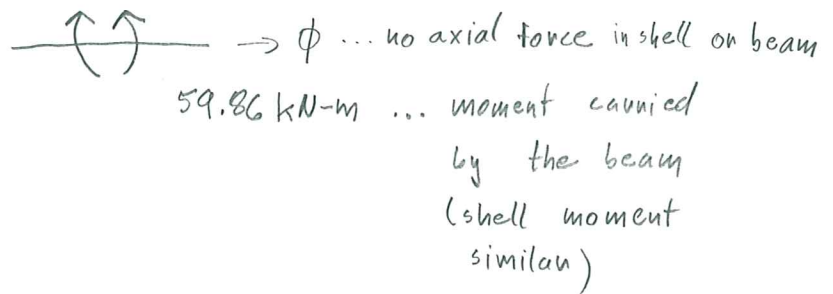 → ϕ ... no axial force in shell or beam
59.86 kN-m ... moment carried
by the beam
(shell moment
similar)